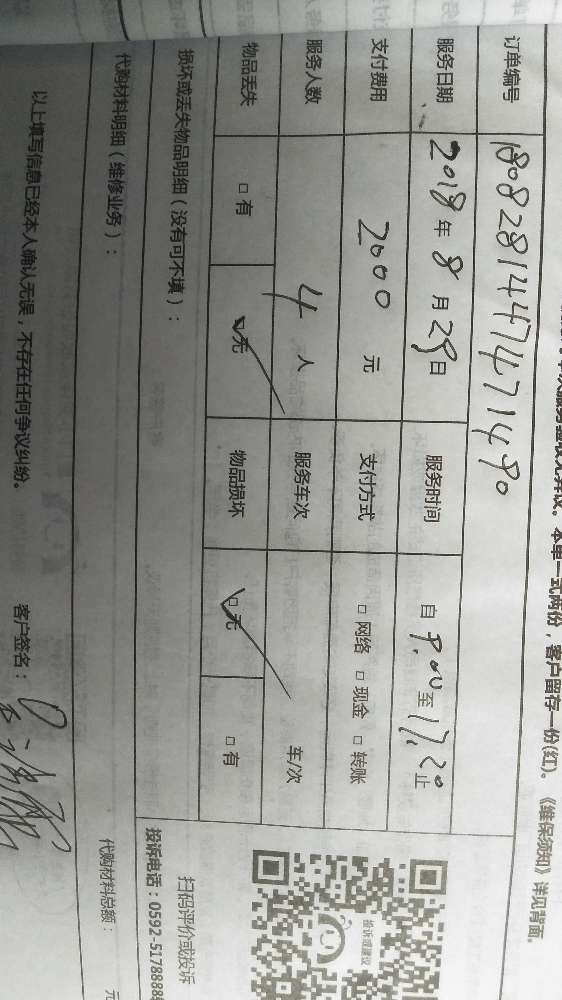 本单一式两份，客户留存一份(红)。《维保须知》详见背面。
订单编号 180828144747471480
服务日期 2018年8月29日 服务时间 自9:00至17:20止
支付费用 2000元 支付方式 □网络 □现金 □转账
服务人数 4人 服务车次 车/次
物品丢失 □有 □无 物品损坏 □无 □有
损坏或丢失物品明细（没有可不填）：
投诉或建议
扫码评价或投诉
投诉电话：0592-5178888
代购材料明细（维修业务）： 代购材料总额： 元
以上填写信息已经本人确认无误，不存在任何争议纠纷。 客户签名：